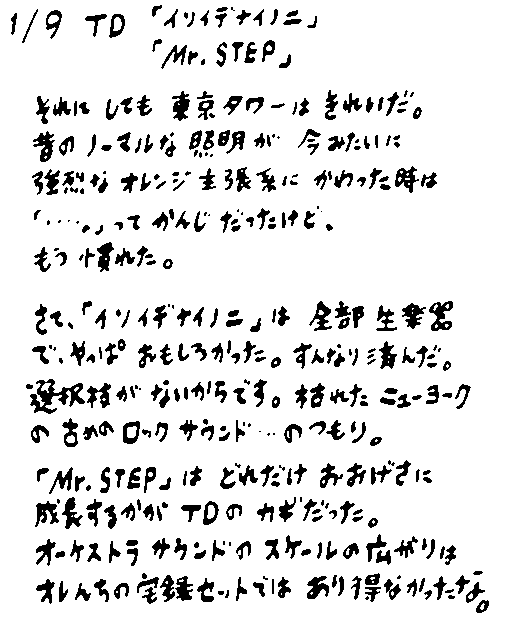 1/9 TD 「イソイデナイノニ」
「Mr. STEP」
それにしても 東京タワーは きれいだ。
昔の ノーマルな 照明が 今みたいに
強烈な オレンジ 主張系に かわった時は
「‥‥。」って かんじ だったけど、
もう 慣れた。
さて、「イソイデナイノニ」は 全部 生楽器
で、やっぱ おもしろかった。すんなり済んだ。
選択枝が ないからです。枯れた ニューヨーク
の 古めの ロック サウンド…のつもり。
「Mr. STEP」は どれだけ おおげさに
成長するかが TDの カギだった。
オーケストラ サウンドの スケールの 広がりは
オレんちの 宅録セットでは あり得なかったな。